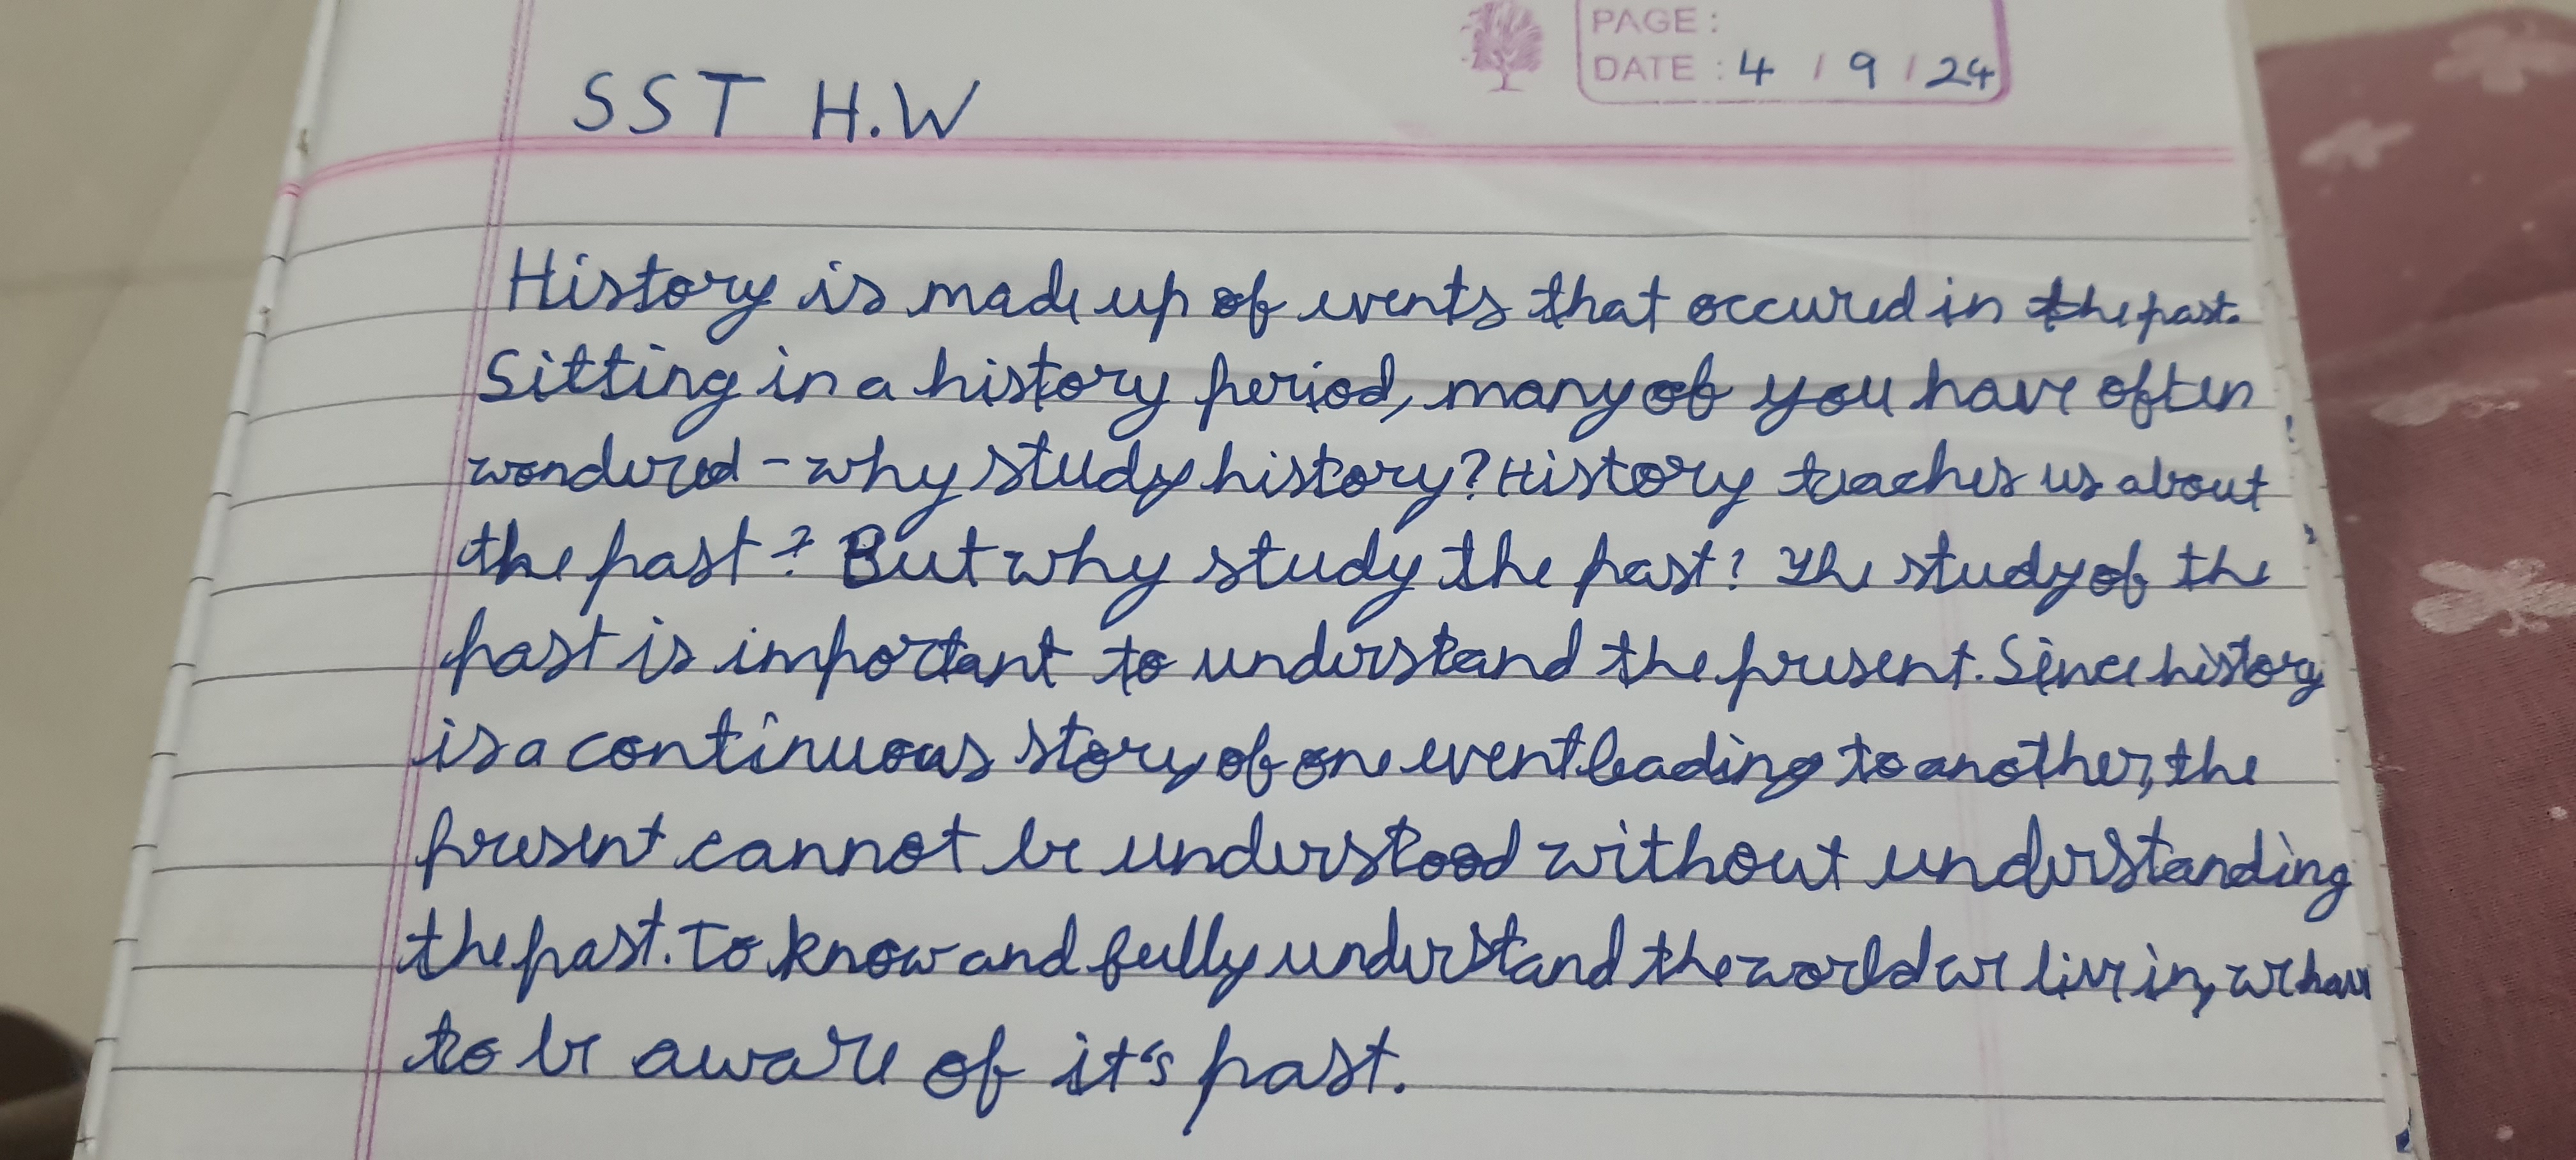 PAGE :
DATE : 4 / 9 / 24
SST H.W
History is made up of events that occured in the past.
Sitting in a history period, many of you have often
wondered - why study history? History teaches us about
the past? But why study the past? The study of the
past is important to understand the present. Since history
is a continuous story of one event leading to another, the
present cannot be understood without understanding
the past. To know and fully understand the world we live in, we have
to be aware of it's past.